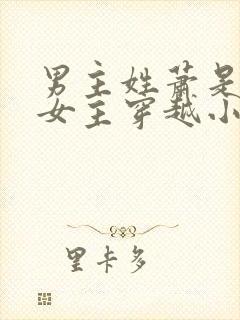 男主姓萧是
女主穿越小
里卡多